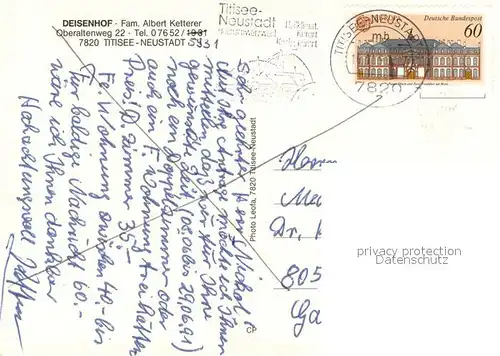 DEISENHOF · Fam. Albert Ketterer
Oberaltenweg 22 · Tel. 07652 / 1931
7820 TITISEE-NEUSTADT 5931
Titisee-
Neustadt
Kurort
TITISEE-NEUSTADT
mb
7820
Deutsche Bundespost
60
Photo Leofa, 7820 Titisee-Neustadt
Sehr geehrter Herr Nickol!
Auf Ihre Anfrage möchte ich Ihnen
mitteilen, daß wir für Ihre
gewünschte Zeit (08.06 bis 29.06.91)
noch ein Doppelzimmer oder
auch ein F. Wohnung frei hätten
Preis: D. Zimmer 35.-
Fe. Wohnung zwischen 40.- bis
60.-
Für baldige Nachricht
wäre ich Ihnen dankbar
Hochachtungsvoll
Herrn
Me
Dr.
805
Ga
privacy protection
Datenschutz